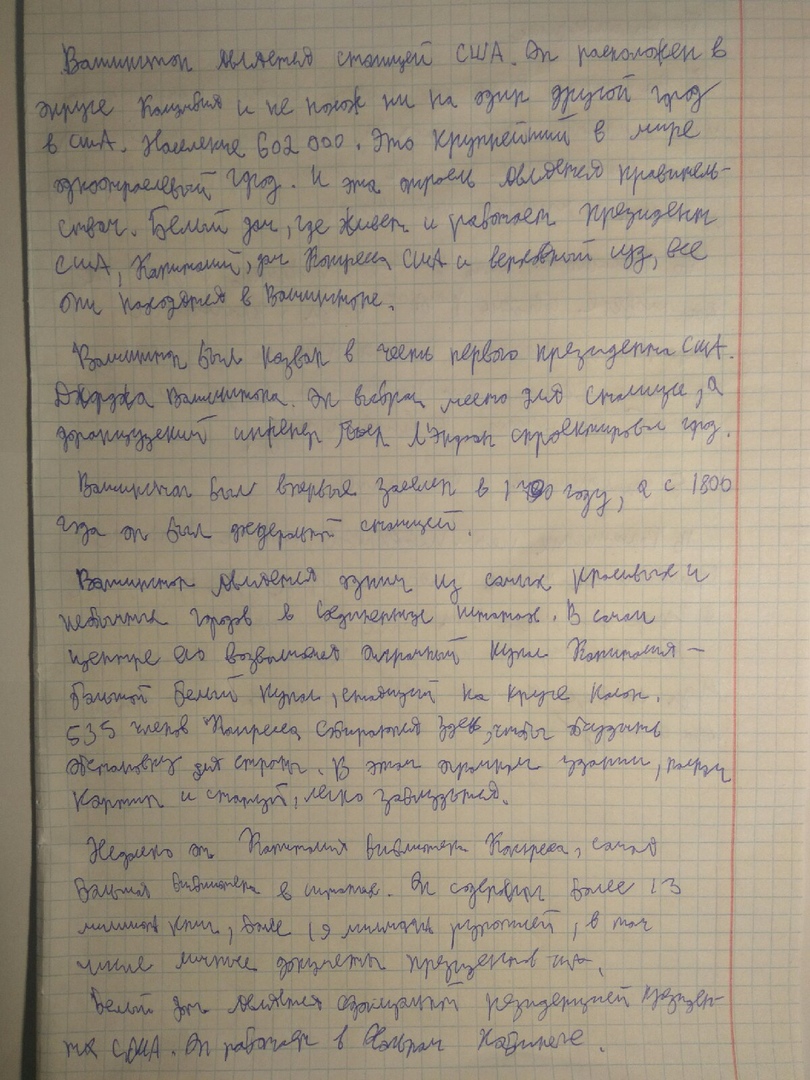 Вашингтон является столицей США. Он расположен в
округе Колумбия и не похож ни на один другой город
в США. Население 602 000. Это крупнейший в мире
одноотраслевый город. И эта отрасль является правитель-
ством. Белый дом, где живет и работает президент
США, Капитолий, дом Конгресса США и верховный суд, все
они находятся в Вашингтоне.
Вашингтон был назван в честь первого президента США.
Джорджа Вашингтона. Он выбрал место для столицы, а
французский инженер Пьер Л'Энфан спроектировал город.
Вашингтон был впервые заселен в 1790 году, а с 1800
года он был федеральной столицей.
Вашингтон является одним из самых красивых и
необычных городов в Соединенных штатах. В самом
центре его возвышается огромный купол Капитолия —
большой белый купол, стоящий на круге колон.
535 членов Конгресса собираются здесь, чтобы обсудить
обстановку для страны. В этом огромном здании, полном
картин и статуй, легко заблудиться.
Недалеко от Капитолия библиотека Конгресса, самая
большая библиотека в штатах. Он содержит более 13
миллионов книг, более 19 миллионов рукописей, в том
числе личные документы президентов США.
Белый дом является официальной резиденцией президен-
та США. Он работает в Овальном Кабинете.